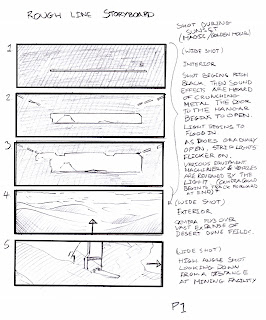 ROUGH LINE STORYBOARD
SHOT DURING
SUNSET
(MAGIC/GOLDEN HOUR)
1
(WIDE SHOT)
INTERIOR
SHOT BEGINS PITCH
BLACK THEN SOUND
EFFECTS ARE HEARD
OF CRUNCHING
METAL. THE DOOR
TO THE HANGAR
BEGINS TO OPEN.
2
LIGHT BEGINS TO
FLOOD IN
AS DOORS GRADUALLY
OPEN, STRIP LIGHTS
FLICKER ON.
3
VARIOUS EQUIPMENT
MACHINERY & VEHICLES
ARE REVEALED BY THE
LIGHT. (CAMERA
BEGINS TO TRACK FORWARD
AT END)
4
(WIDE SHOT)
EXTERIOR
CAMERA FLYS OVER
VAST EXPANSE OF
DESERT DUNE FIELDS.
5
(WIDE SHOT)
HIGH ANGLE SHOT
LOOKING DOWN
FROM A DISTANCE
AT MINING FACILITY
P1